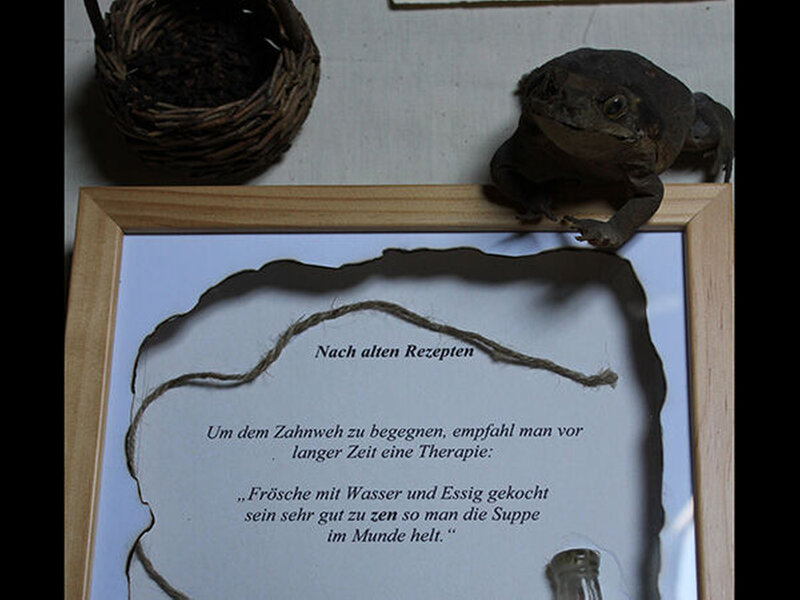 Nach alten Rezepten
Um dem Zahnweh zu begegnen, empfahl man vor
langer Zeit eine Therapie:
„Frösche mit Wasser und Essig gekocht
sein sehr gut zu zen so man die Suppe
im Munde helt.“